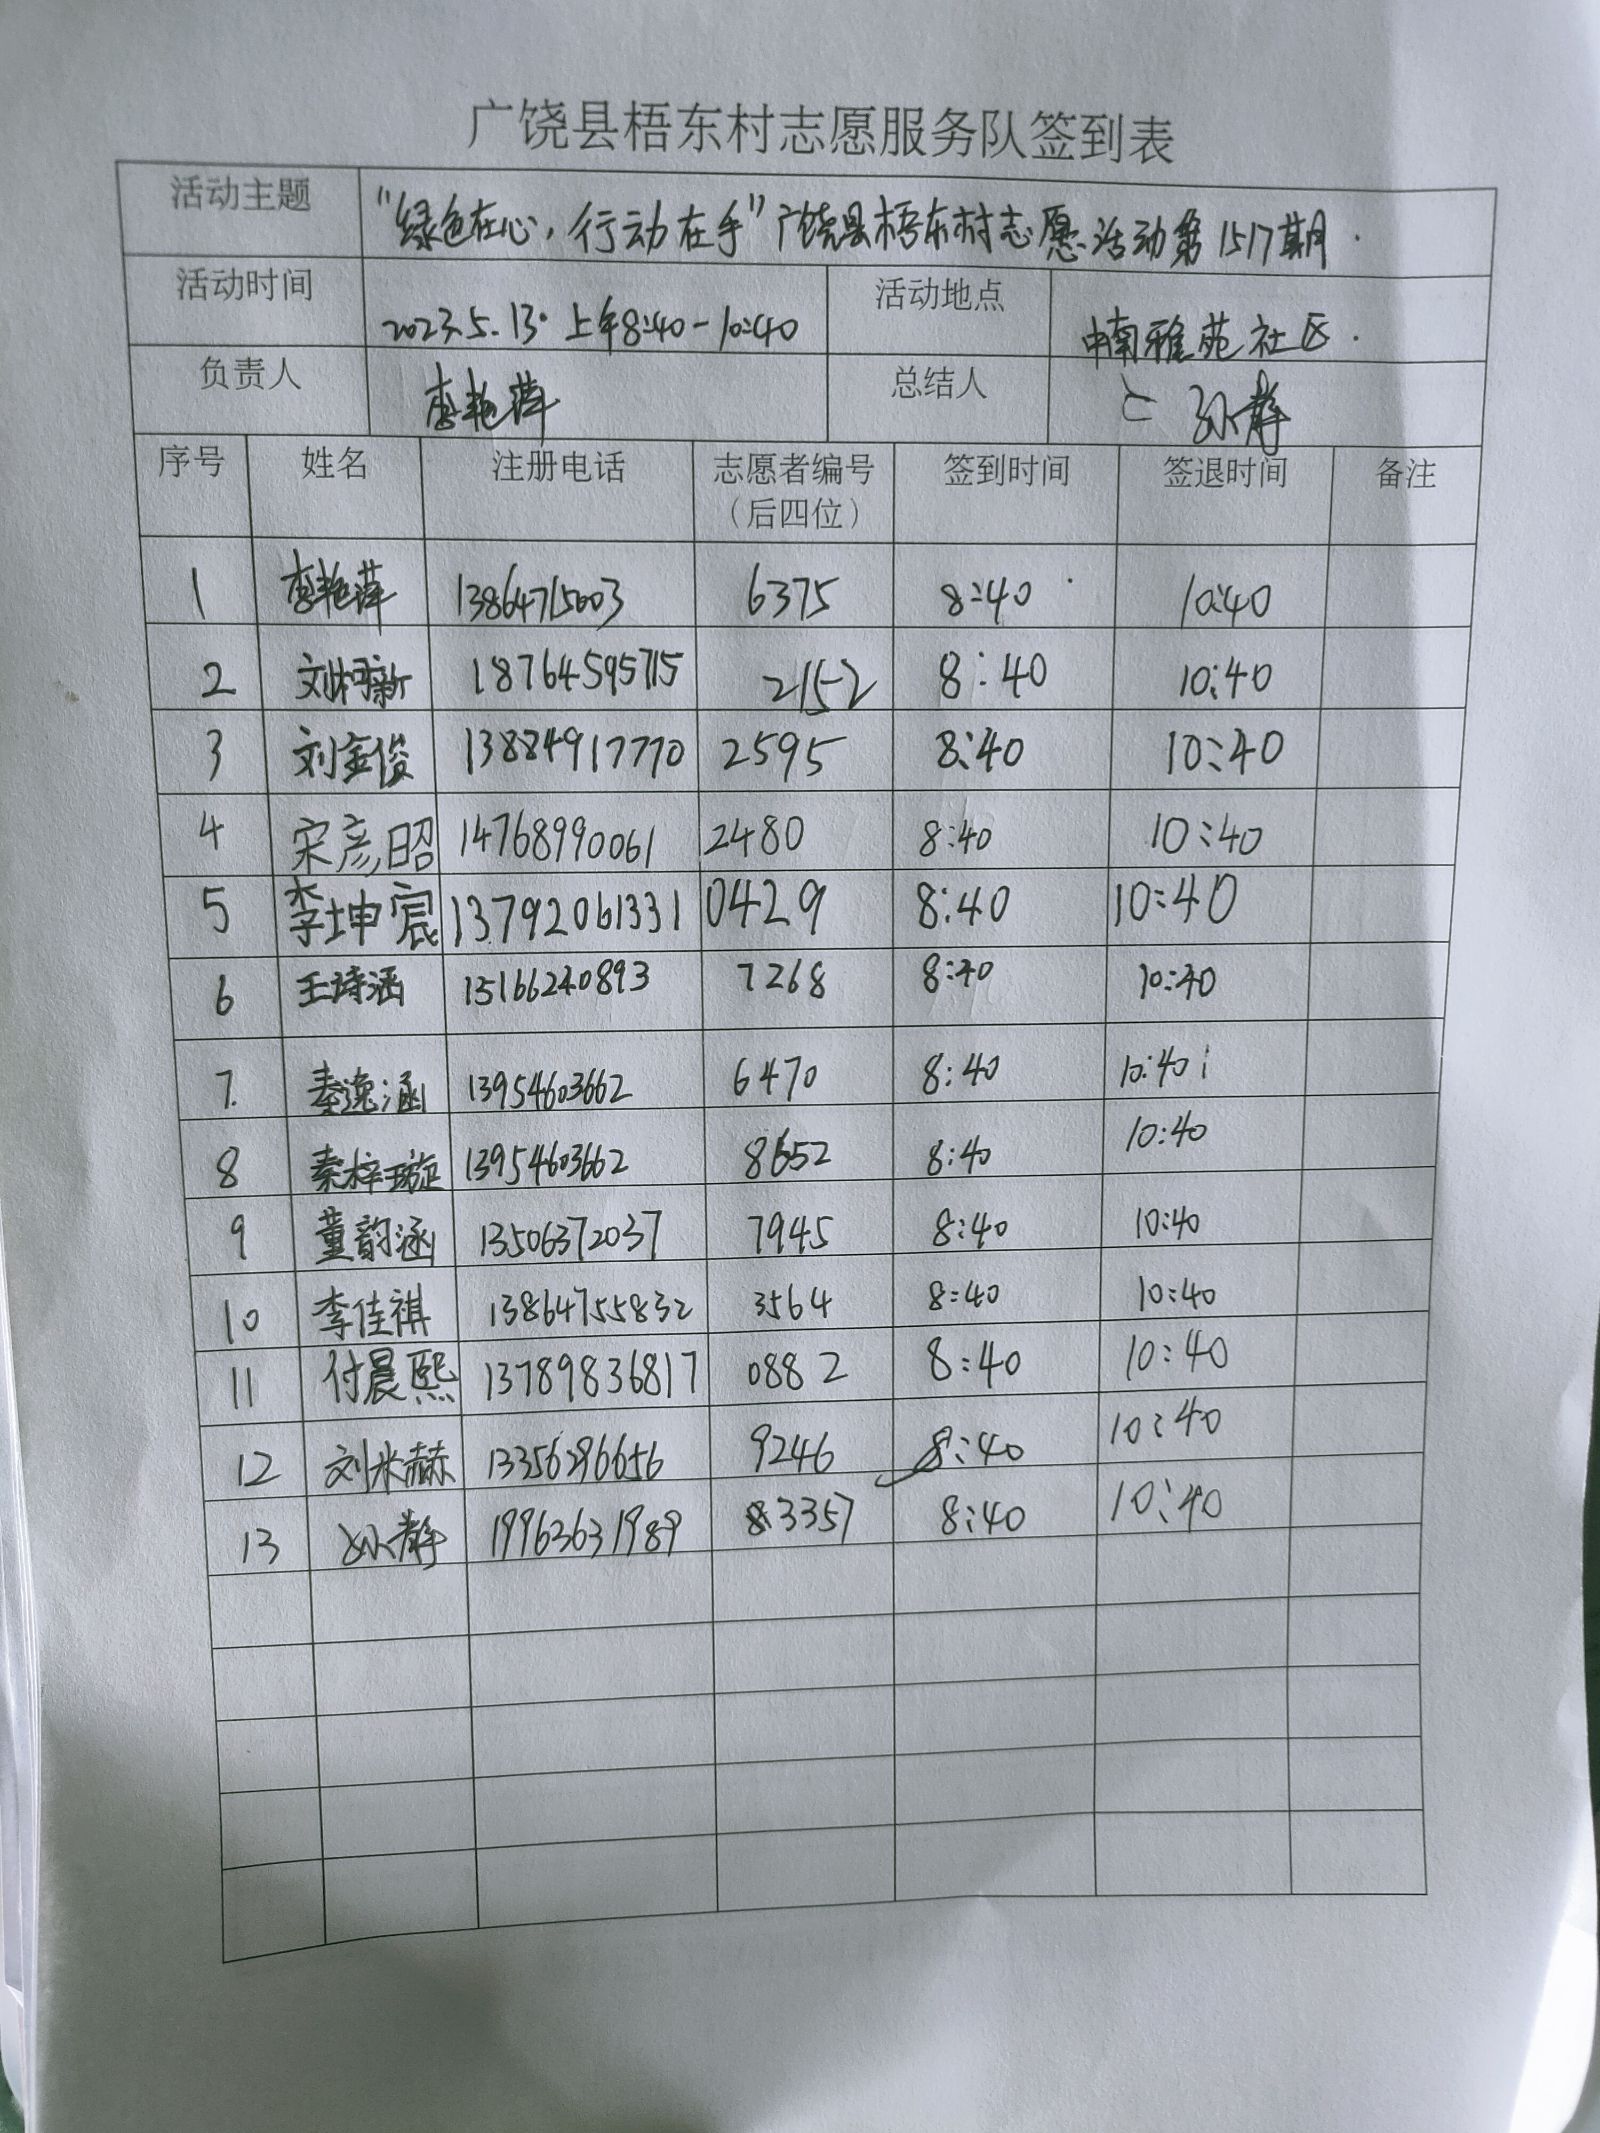 广饶县梧东村志愿服务队签到表
活动主题 "绿色在心，行动在手"广饶县梧东村志愿活动第1517期
活动时间 2023.5.13. 上午8:40-10:40 活动地点 中南雅苑社区.
负责人 李艳萍 总结人 孙静
序号 姓名 注册电话 志愿者编号 签到时间 签退时间 备注
（后四位）
1 李艳萍 13864715003 6375 8:40 10:40
2 刘柯新 18764595715 2152 8:40 10:40
3 刘金俊 13884917770 2595 8:40 10:40
4 宋彦昭 14768990061 2480 8:40 10:40
5 李坤宸 13792061331 0429 8:40 10:40
6 王诗涵 15166240893 7268 8:40 10:40
7. 秦逸涵 13954603662 6470 8:40 10:40
8 秦梓璇 13954603662 8652 8:40 10:40
9 董韵涵 13506372037 7945 8:40 10:40
10 李佳祺 13864755832 3564 8:40 10:40
11 付晨熙 13789836817 0882 8:40 10:40
12 刘米赫 13356296656 9246 8:40 10:40
13 孙静 19963631989 3357 8:40 10:40